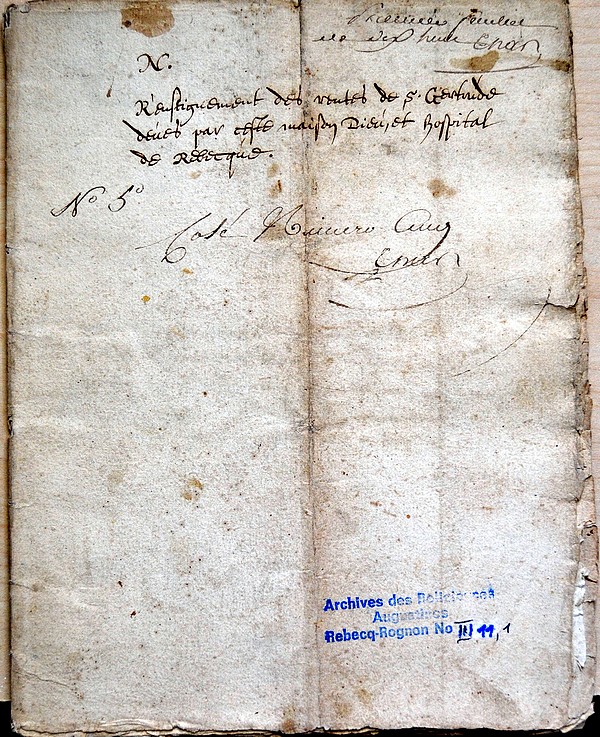 premier feuillet
de dix huit
N.
Renseignement des rentes de S. Gertrude
deues par ceste maison Dieu, et hospital
de Rebecque.
No 5o
Coté Numero Cinq
Archives des Religieuses
Augustines
Rebecq-Rognon No III 11,1